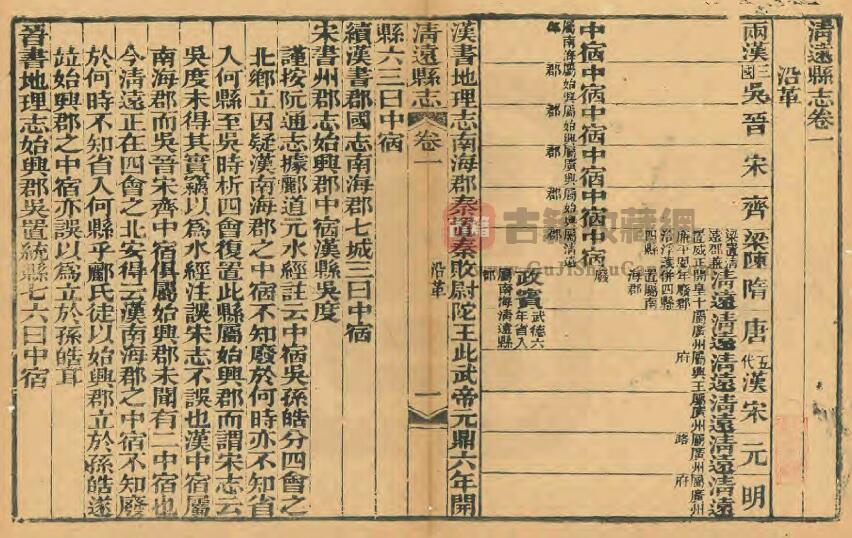 清遠縣志卷一
沿革
兩漢 三國吳 晉 宋 齊 梁 陳 隋 唐 五代 漢 宋 元 明
中宿 中宿 中宿 中宿 中宿 中宿
屬南海郡 屬始興郡 屬始興郡 屬廣興郡 屬始興郡 屬清遠
政賓
武德六年省入清遠縣
屬南海郡
清遠 清遠 清遠 清遠 清遠 清遠
漢書地理志南海郡秦置秦敗尉陀王此武帝元鼎六年開
清遠縣志 卷一 沿革 一
縣六三曰中宿
續漢書郡國志南海郡七城三曰中宿
宋書州郡志始興郡中宿漢縣吳度
謹按阮通志據酈道元水經註云中宿吳孫皓分四會之
北鄉立因疑漢南海郡之中宿不知廢於何時亦不知省
入何縣至吳時析四會復置此縣屬始興郡而謂宋志云
吳度未得其實竊以為水經注誤宋志不誤也漢中宿屬
南海郡而吳晉宋齊中宿俱屬始興郡未聞有二中宿也
今清遠正在四會之北安得云漢南海郡之中宿不知廢
於何時不知省入何縣乎酈氏徒以始興郡立於孫皓遂
竝始興郡之中宿亦誤以為立於孫皓耳
晉書地理志始興郡吳置統縣七六曰中宿
古籍收藏網
GuJiShuCang
古籍